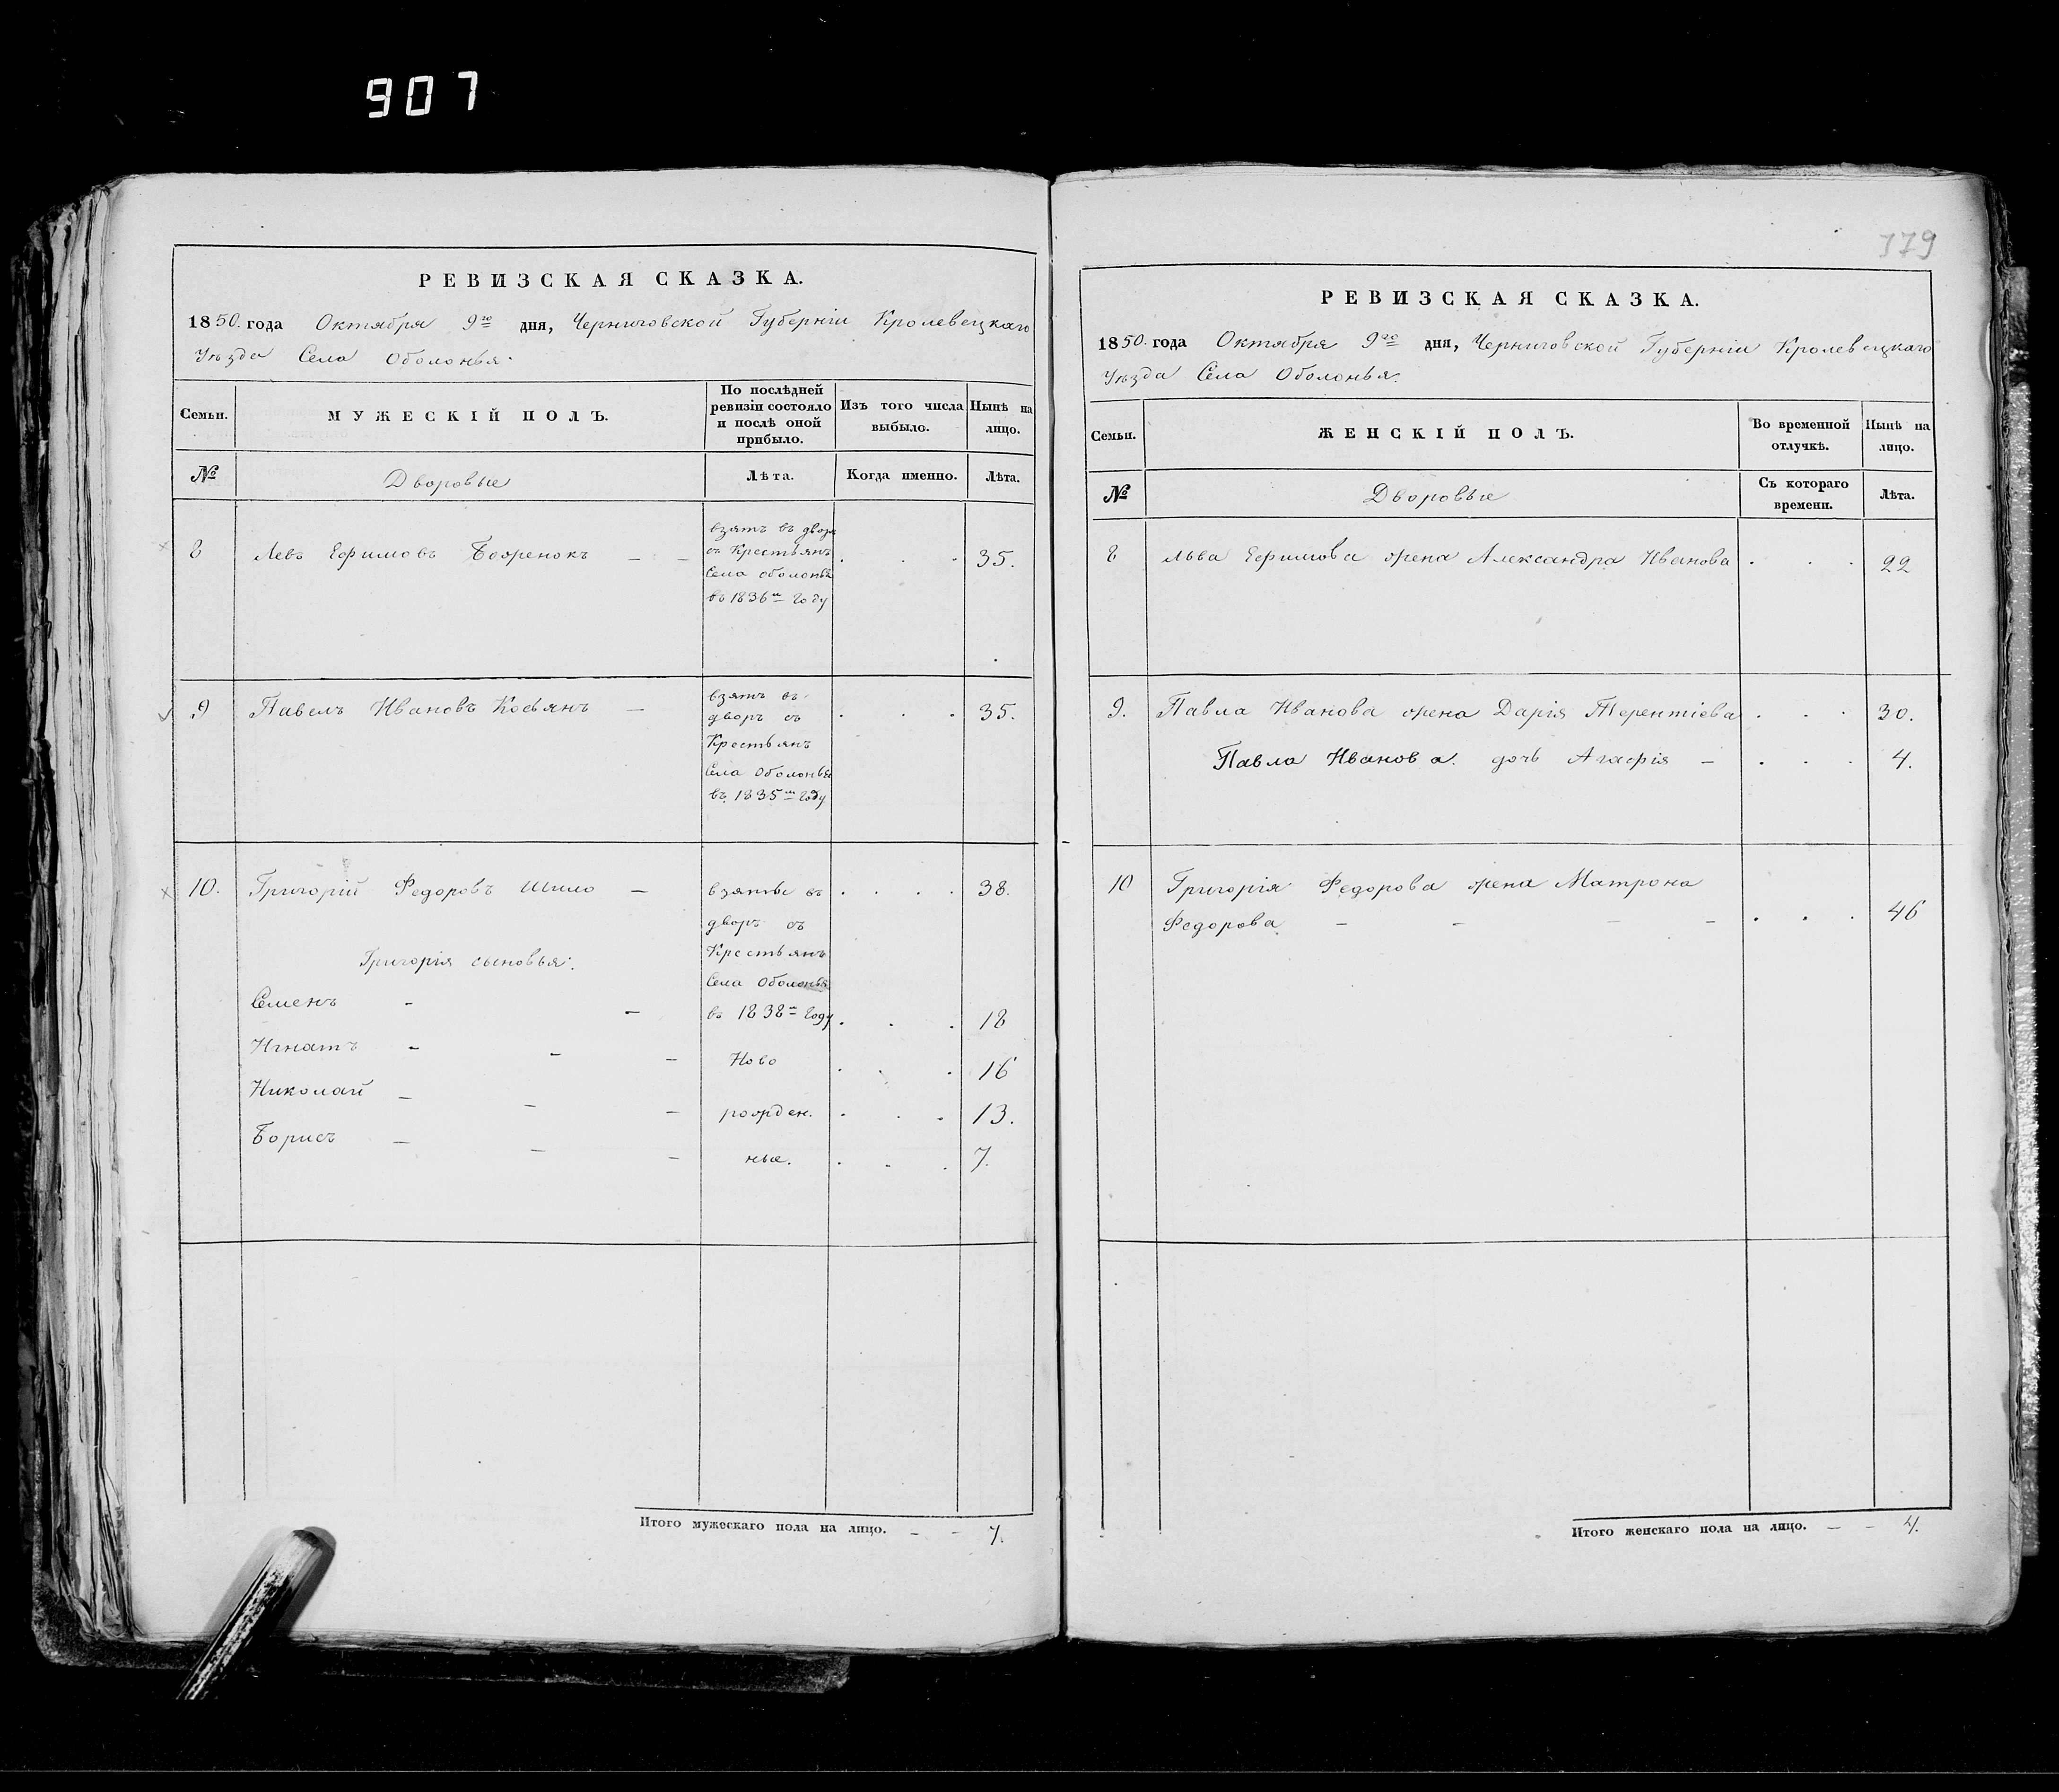 907
РЕВИЗСКАЯ СКАЗКА.
1850. года Октября 9го дня, Черниговской Губерніи Кролевецкаго
Уѣзда Села Оболонья.
Семьи.
МУЖЕСКІЙ ПОЛЪ.
По послѣдней
ревизіи состояло
и послѣ оной
прибыло.
Изъ того числа
выбыло.
Нынѣ на
лицо.
№
Дворовые
Лѣта.
Когда именно.
Лѣта.
8 Левъ Ефимовъ Бояренокъ — — . . . 35.
взятъ въ дворъ
съ Крестьянъ
Села Оболонья
въ 1836м Году
9 Павелъ Ивановъ Касьянъ — . . . 35.
взятъ въ
дворъ съ
Крестьянъ
Села Оболонья
въ 1835м Году
10. Григорій Федоровъ Шило — взяты въ . . . . 38.
дворъ съ
Григорія сыновья: Крестьянъ
Села Оболонья
Семенъ - — въ 1838м Году . . . 18
Игнатъ - - — Ново . . . 16
Николай — — — рожден. . . . 13.
Борисъ — — — ные. . . . 7.
Итого мужескаго пола на лицо. — - 7.
379
РЕВИЗСКАЯ СКАЗКА.
1850. года Октября 9го дня, Черниговской Губерніи Кролевецкаго
Уѣзда Села Оболонья.
Семьи.
ЖЕНСКІЙ ПОЛЪ.
Во временной
отлучкѣ.
Нынѣ на
лицо.
№
Дворовые
Съ котораго
времени.
Лѣта.
8 Льва Ефимова жена Александра Иванова . . . 22
9. Павла Иванова жена Дарія Терентіева . . . 30.
Павла Иванова. дочь Агафія — . . . 4.
10 Григорія Федорова жена Матрона
Федорова — — — — . . . 46
Итого женскаго пола на лицо. — - 4.